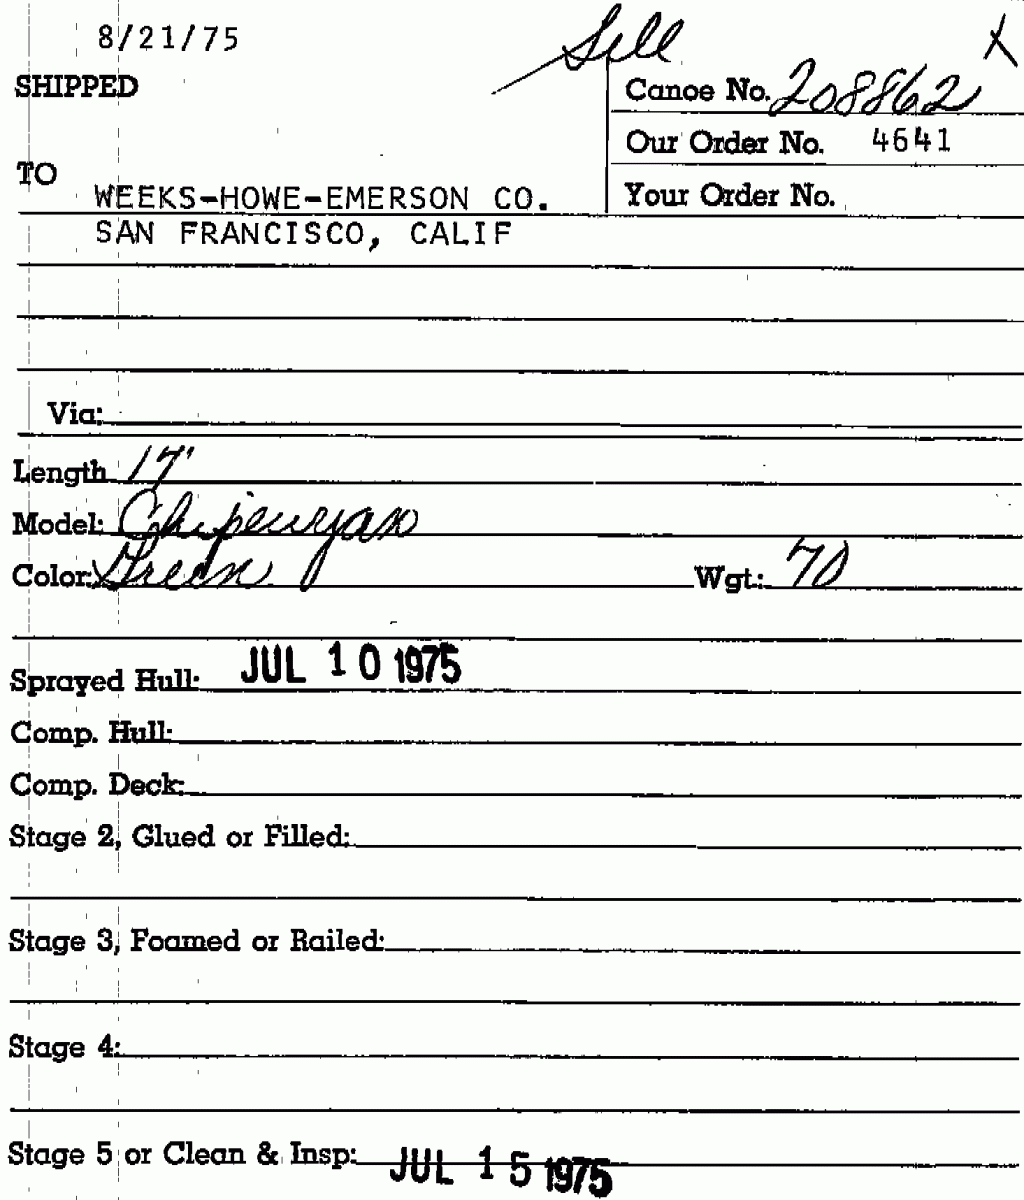 8/21/75
Sell X
SHIPPED
Canoe No. 208862
Our Order No. 4641
TO
WEEKS-HOWE-EMERSON CO.
Your Order No.
SAN FRANCISCO, CALIF
Via:
Length 17'
Model: Chipewyan
Color: Green Wgt.: 70
Sprayed Hull: JUL 10 1975
Comp. Hull:
Comp. Deck:
Stage 2, Glued or Filled:
Stage 3, Foamed or Railed:
Stage 4:
Stage 5 or Clean & Insp: JUL 15 1975